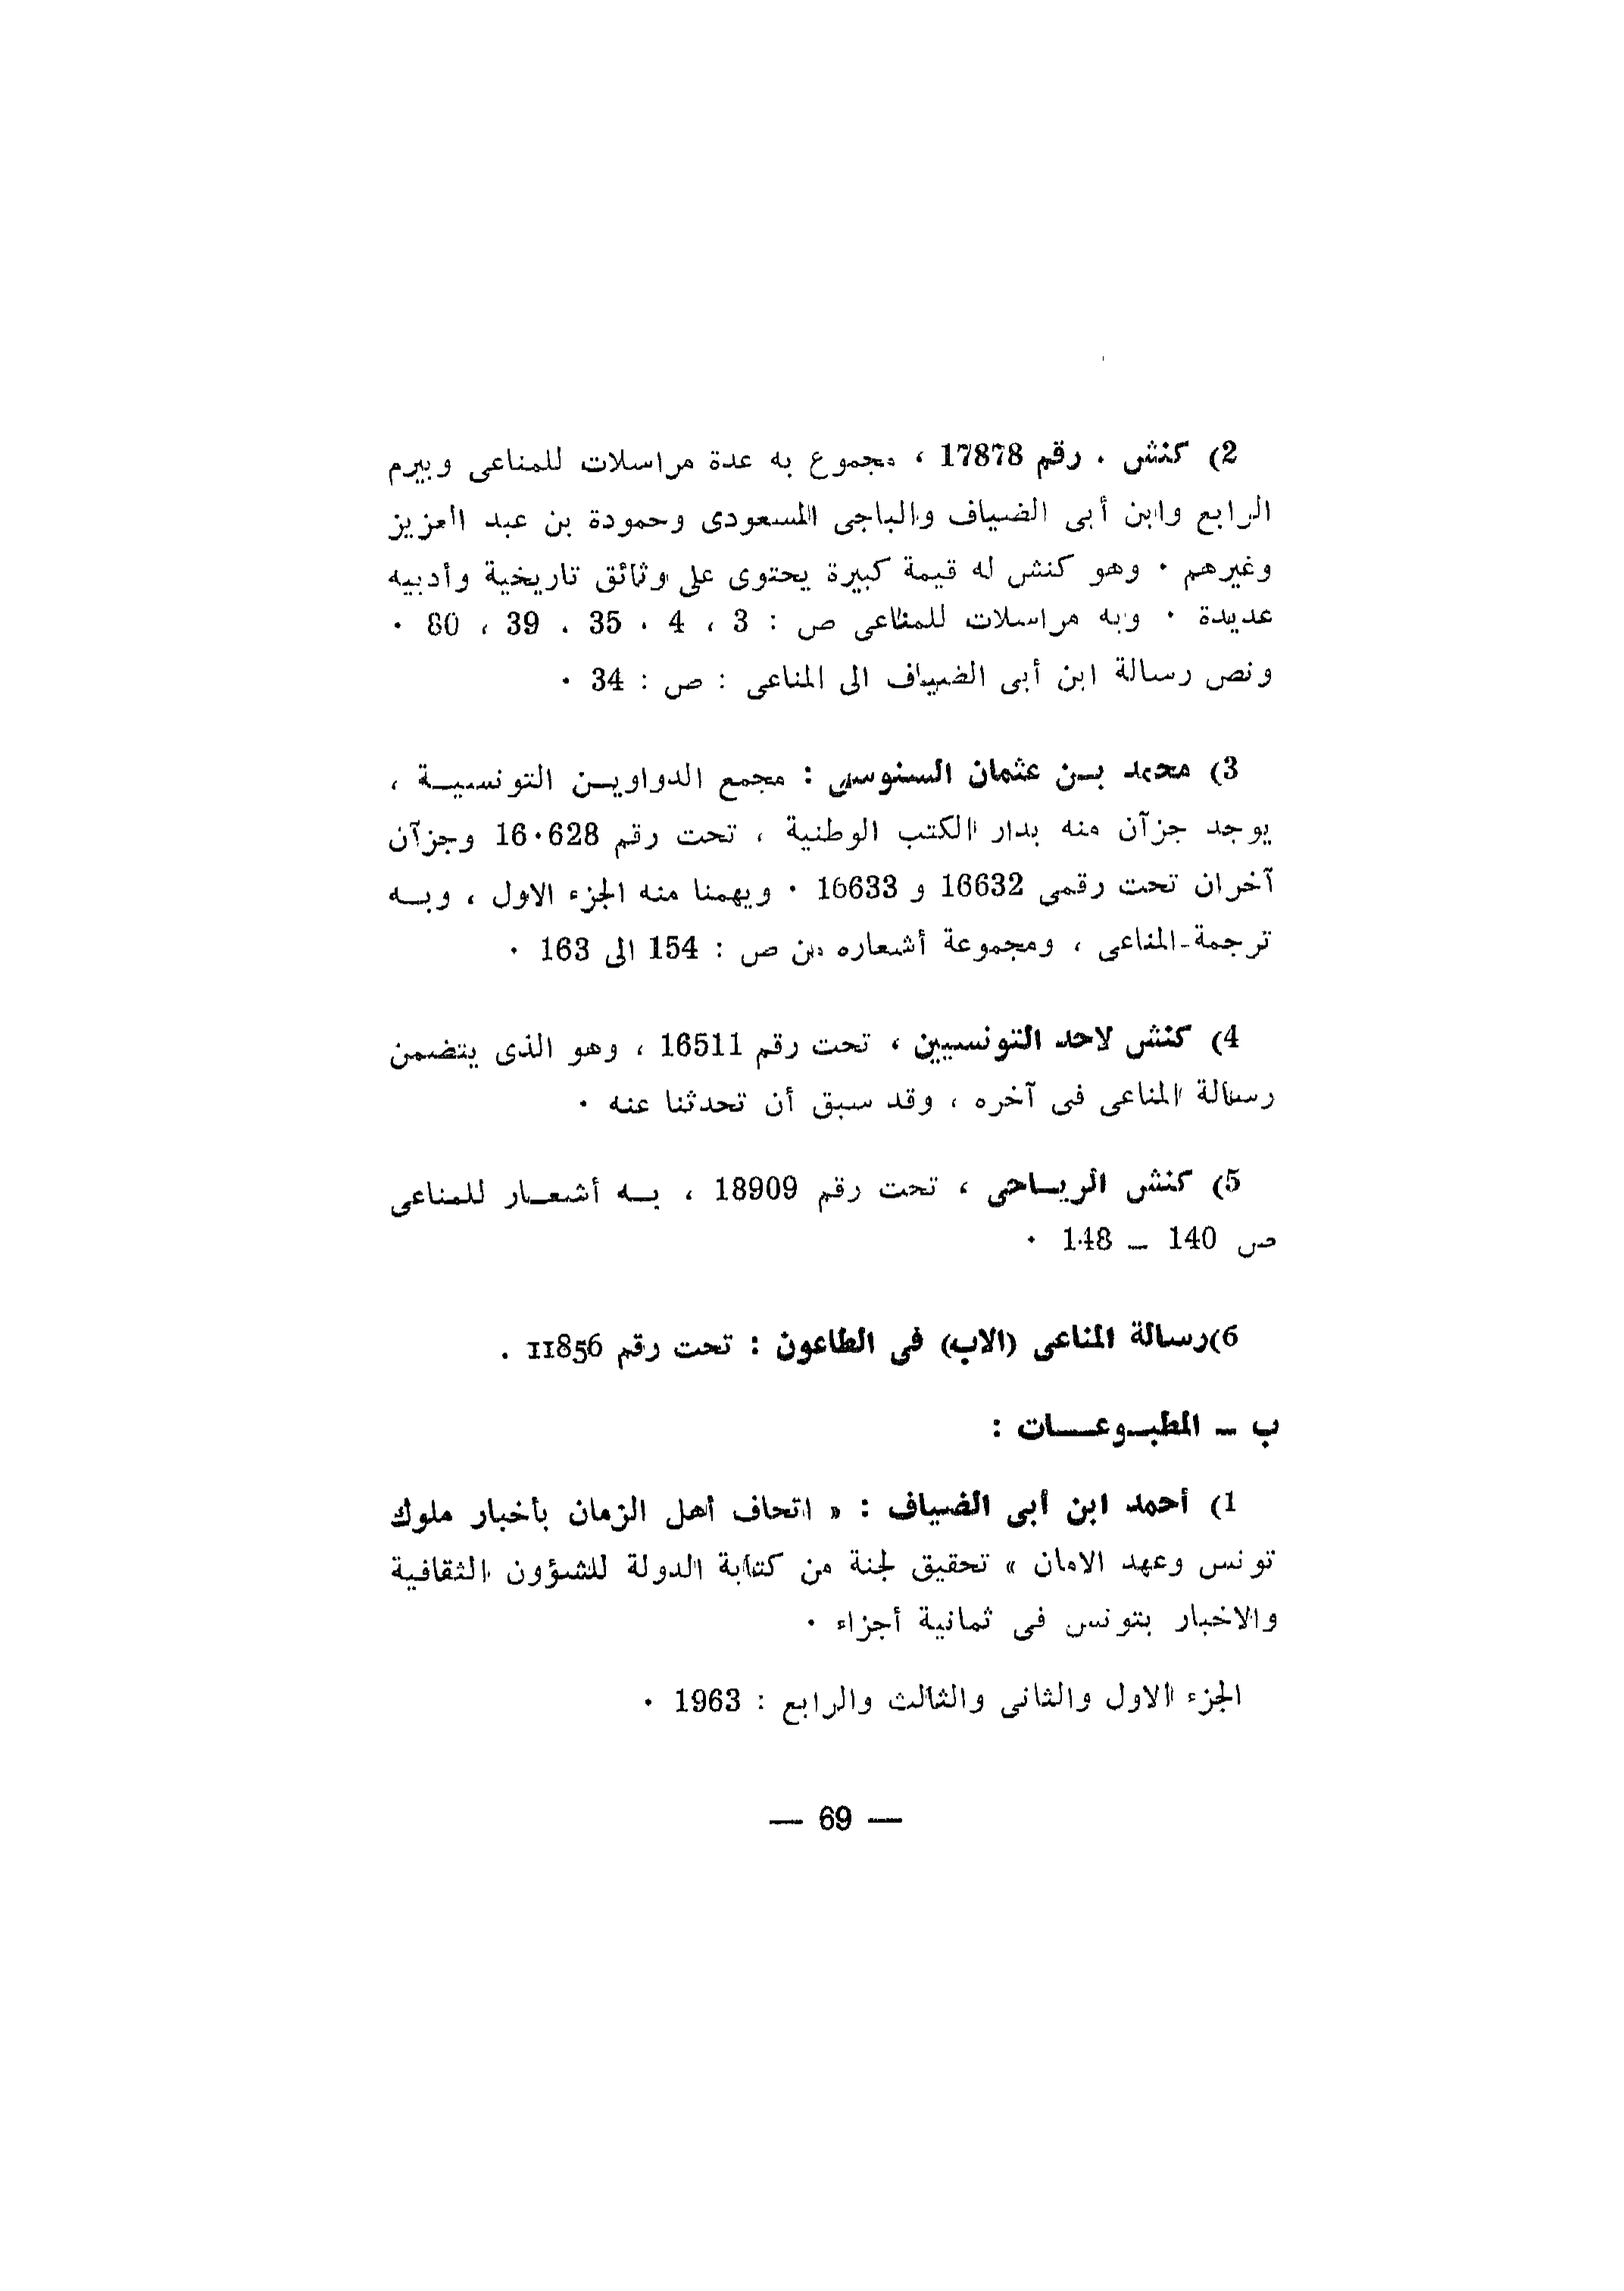 2) كنش . رقم 17878 ، مجموع به عدة مراسلات للمناعى وبيرم
الرابع وابن أبى الضياف والباجى المسعودى وحمودة بن عبد العزيز
وغيرهم . وهو كنش له قيمة كبيرة يحتوى على وثائق تاريخية وأدبيه
عديدة . وبه مراسلات للمناعى ص : 3 ، 4 ، 35 ، 39 ، 80 .
ونص رسالة ابن أبى الضياف الى المناعى : ص : 34 .
3) محمد بن عثمان السنوسى : مجمع الدواوين التونسية ،
يوجد جزآن منه بدار الكتب الوطنية ، تحت رقم 16.628 وجزآن
آخران تحت رقمى 16632 و 16633 . ويهمنا منه الجزء الاول ، وبه
ترجمة المناعى ، ومجموعة أشعاره من ص : 154 الى 163 .
4) كنش لاحد التونسيين ، تحت رقم 16511 ، وهو الذى يتضمن
رسالة المناعى فى آخره ، وقد سبق أن تحدثنا عنه .
5) كنش الرياحى ، تحت رقم 18909 ، به أشعار للمناعى
ص 140 – 148 .
6) رسالة المناعى (الاب) فى الطاعون : تحت رقم 11856 .
ب – المطبوعات :
1) أحمد ابن أبى الضياف : « اتحاف أهل الزمان بأخبار ملوك
تونس وعهد الامان » تحقيق لجنة من كتابة الدولة للشؤون الثقافية
والاخبار بتونس فى ثمانية أجزاء .
الجزء الاول والثانى والثالث والرابع : 1963 .
— 69 —